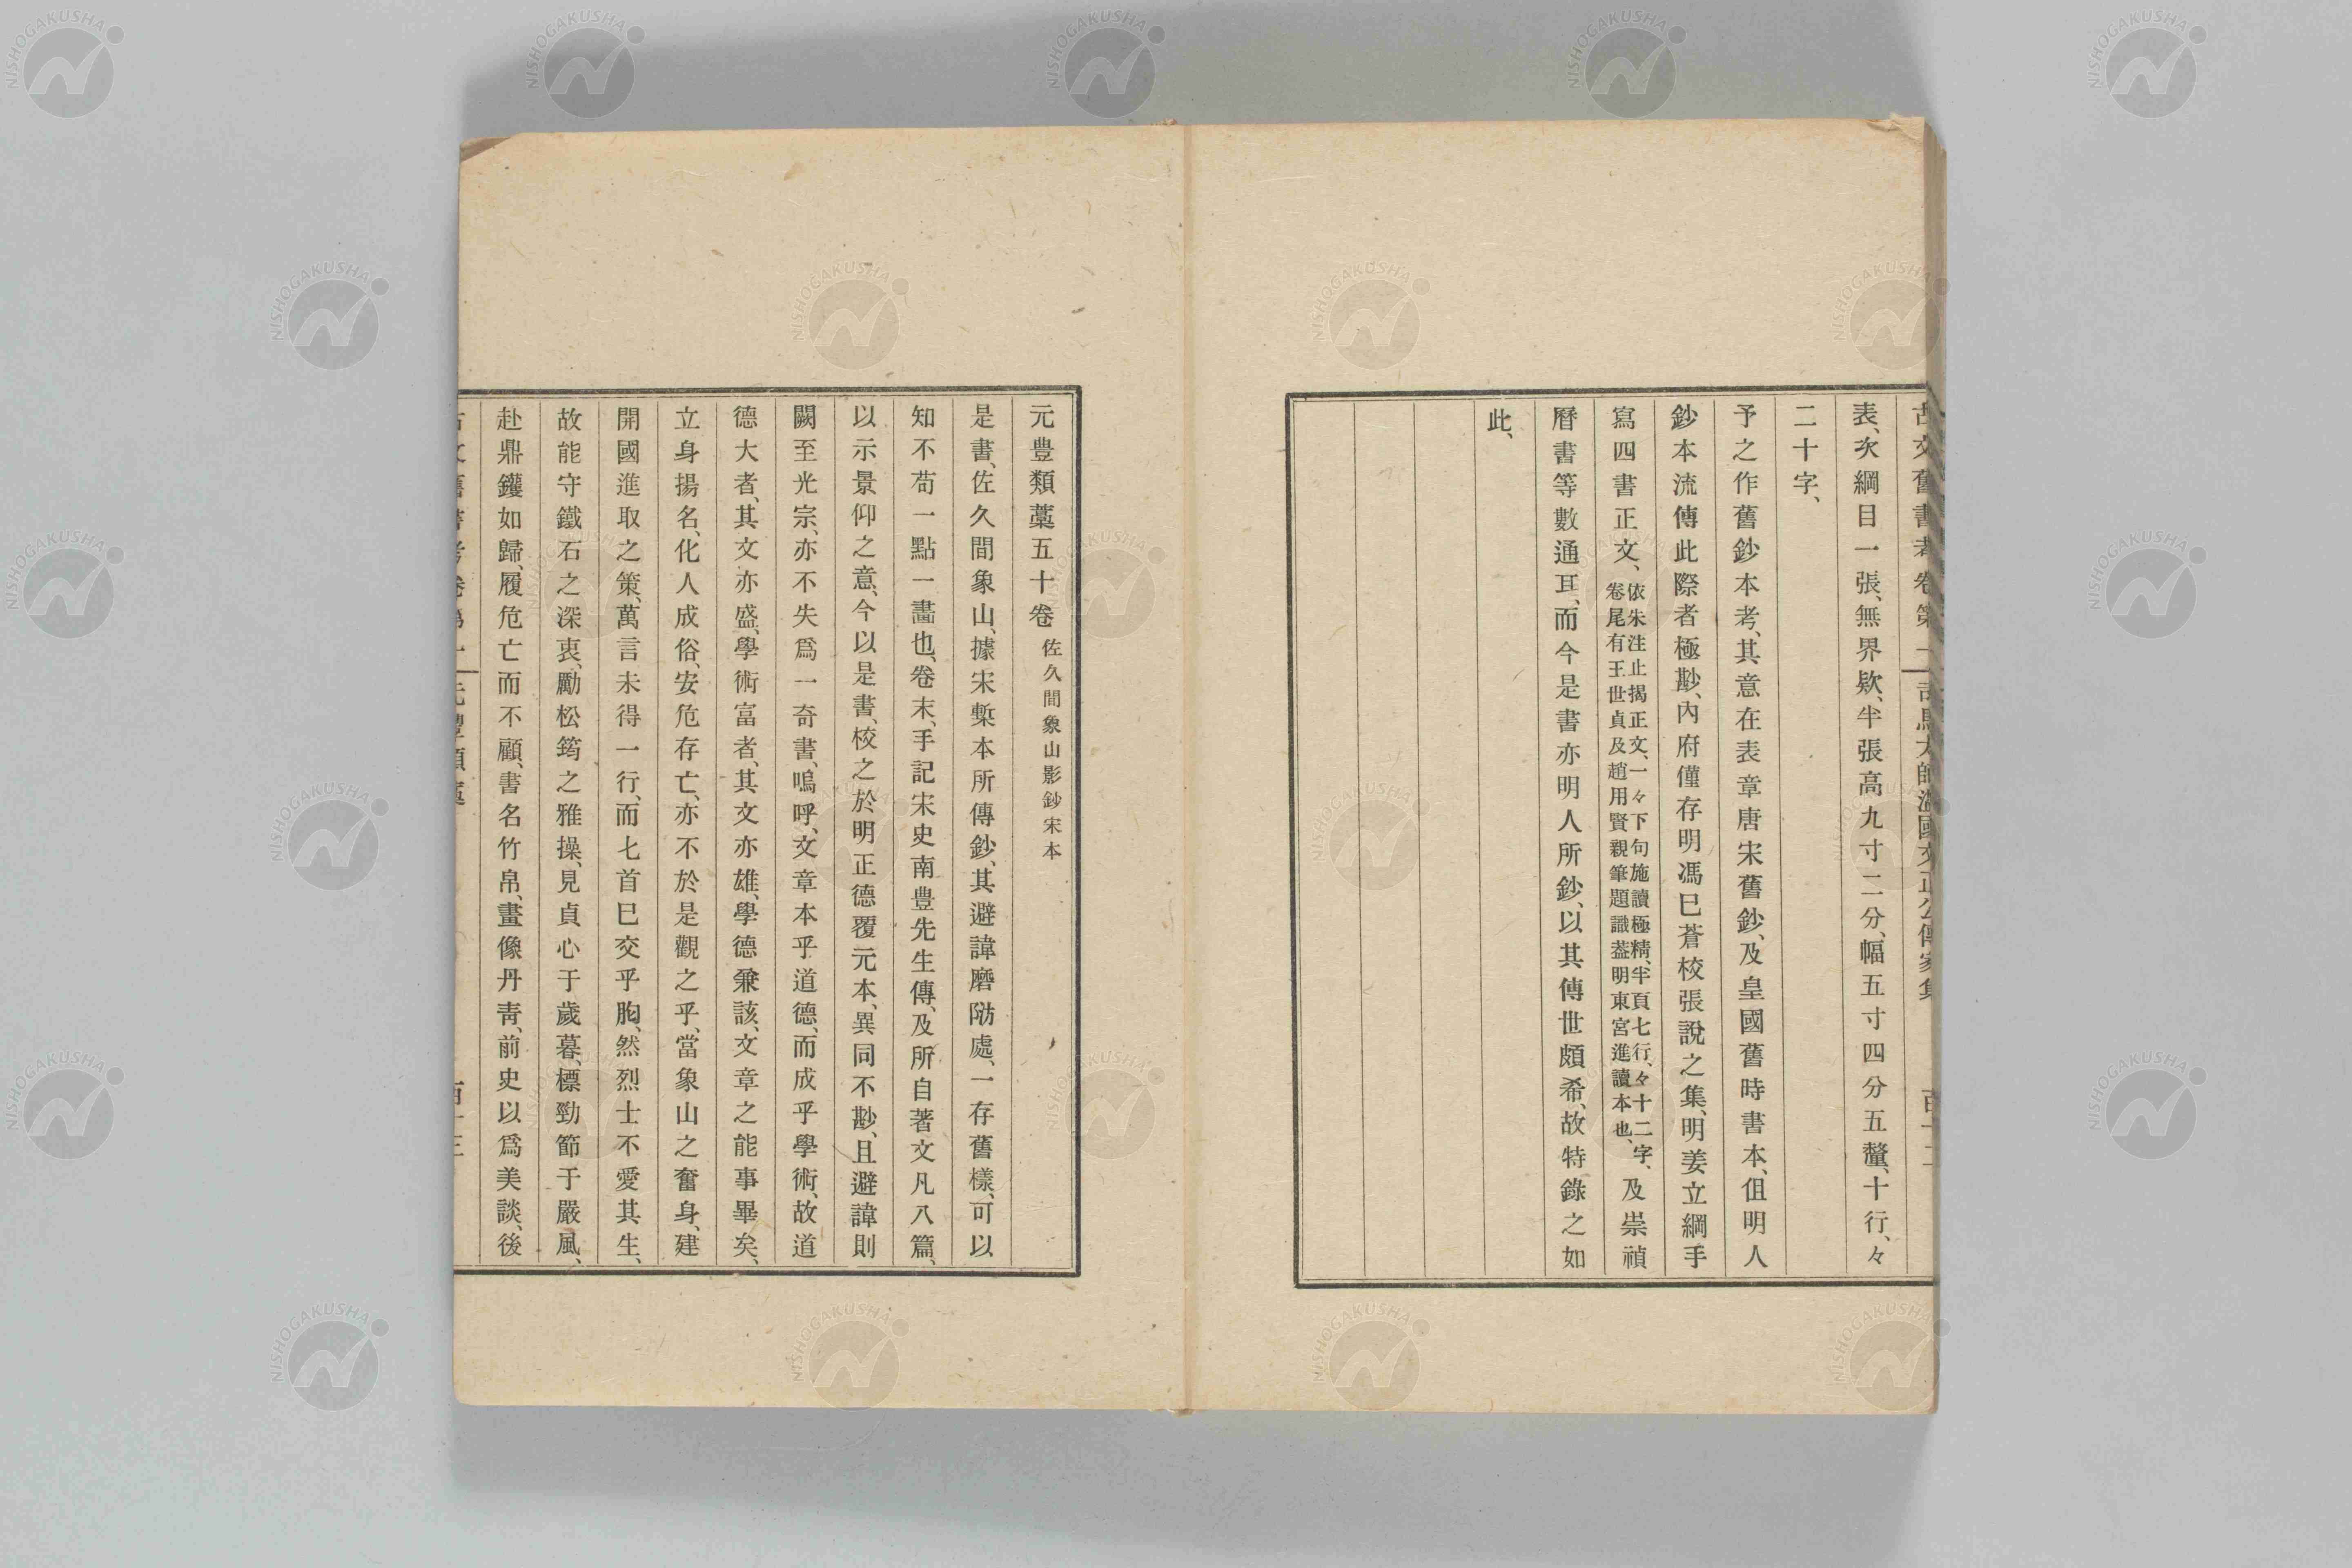 表、次綱目一張、無界欵、半張高九寸二分、幅五寸四分五釐、十行、々
二十字、
予之作舊鈔本考、其意在表章唐宋舊鈔、及皇國舊時書本、伹明人
鈔本流傳此際者極尠、內府僅存明馮巳蒼校張說之集、明姜立綱手
寫四書正文、依朱注止揭正文、一々下句施讀極精、半頁七行、々十二字、卷尾有王世貞及趙用賢親筆題識葢明東宮進讀本也、及崇禎
曆書等數通耳、而今是書亦明人所鈔、以其傳世頗希、故特錄之如
此、
元豊類藁五十卷 佐久間象山影鈔宋本
是書、佐久間象山、據宋槧本所傳鈔、其避諱磨泐處、一存舊樣、可以
知不苟一點一畵也、卷末、手記宋史南豊先生傳、及所自著文凡八篇、
以示景仰之意、今以是書、校之於明正德覆元本、異同不尠、且避諱則
闕至光宗、亦不失爲一奇書、嗚呼、文章本乎道德、而成乎學術、故道
德大者、其文亦盛、學術富者、其文亦雄、學德兼該、文章之能事畢矣、
立身揚名、化人成俗、安危存亡、亦不於是觀之乎、當象山之奮身、建
開國進取之策、萬言未得一行、而七首巳交乎胸、然烈士不愛其生、
故能守鐵石之深衷、勵松筠之雅操、見貞心于歲暮、標勁節于嚴風、
赴鼎鑊如歸、履危亡而不顧、書名竹帛、畫像丹靑、前史以爲美談、後